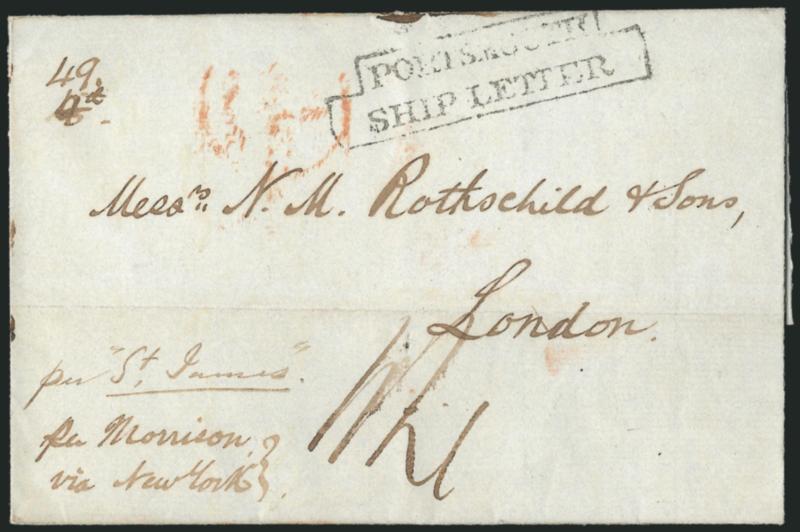 49.
PORTSMOUTH
SHIP LETTER
Messrs. N. M. Rothschild & Sons,
London.
per "St. James".
per Morrison
via New York